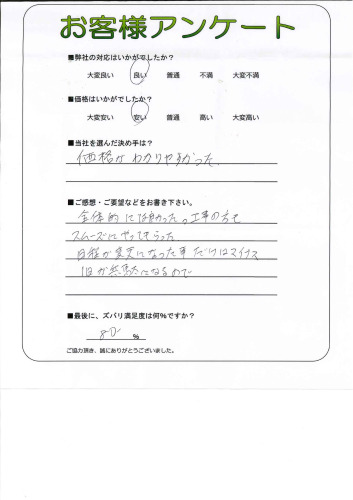 お客様アンケート
■弊社の対応はいかがでしたか？
大変良い 良い 普通 不満 大変不満
■価格はいかがでしたか？
大変安い 安い 普通 高い 大変高い
■当社を選んだ決め手は？
価格がわかりやすかった。
■ご感想・ご要望などをお書き下さい。
全体的には良かった。工事の方も
スムーズにやってもらった
日程が変更になった事だけはマイナス
1日が無駄になるので
■最後に、ズバリ満足度は何％ですか？
80 %
ご協力頂き、誠にありがとうございました。